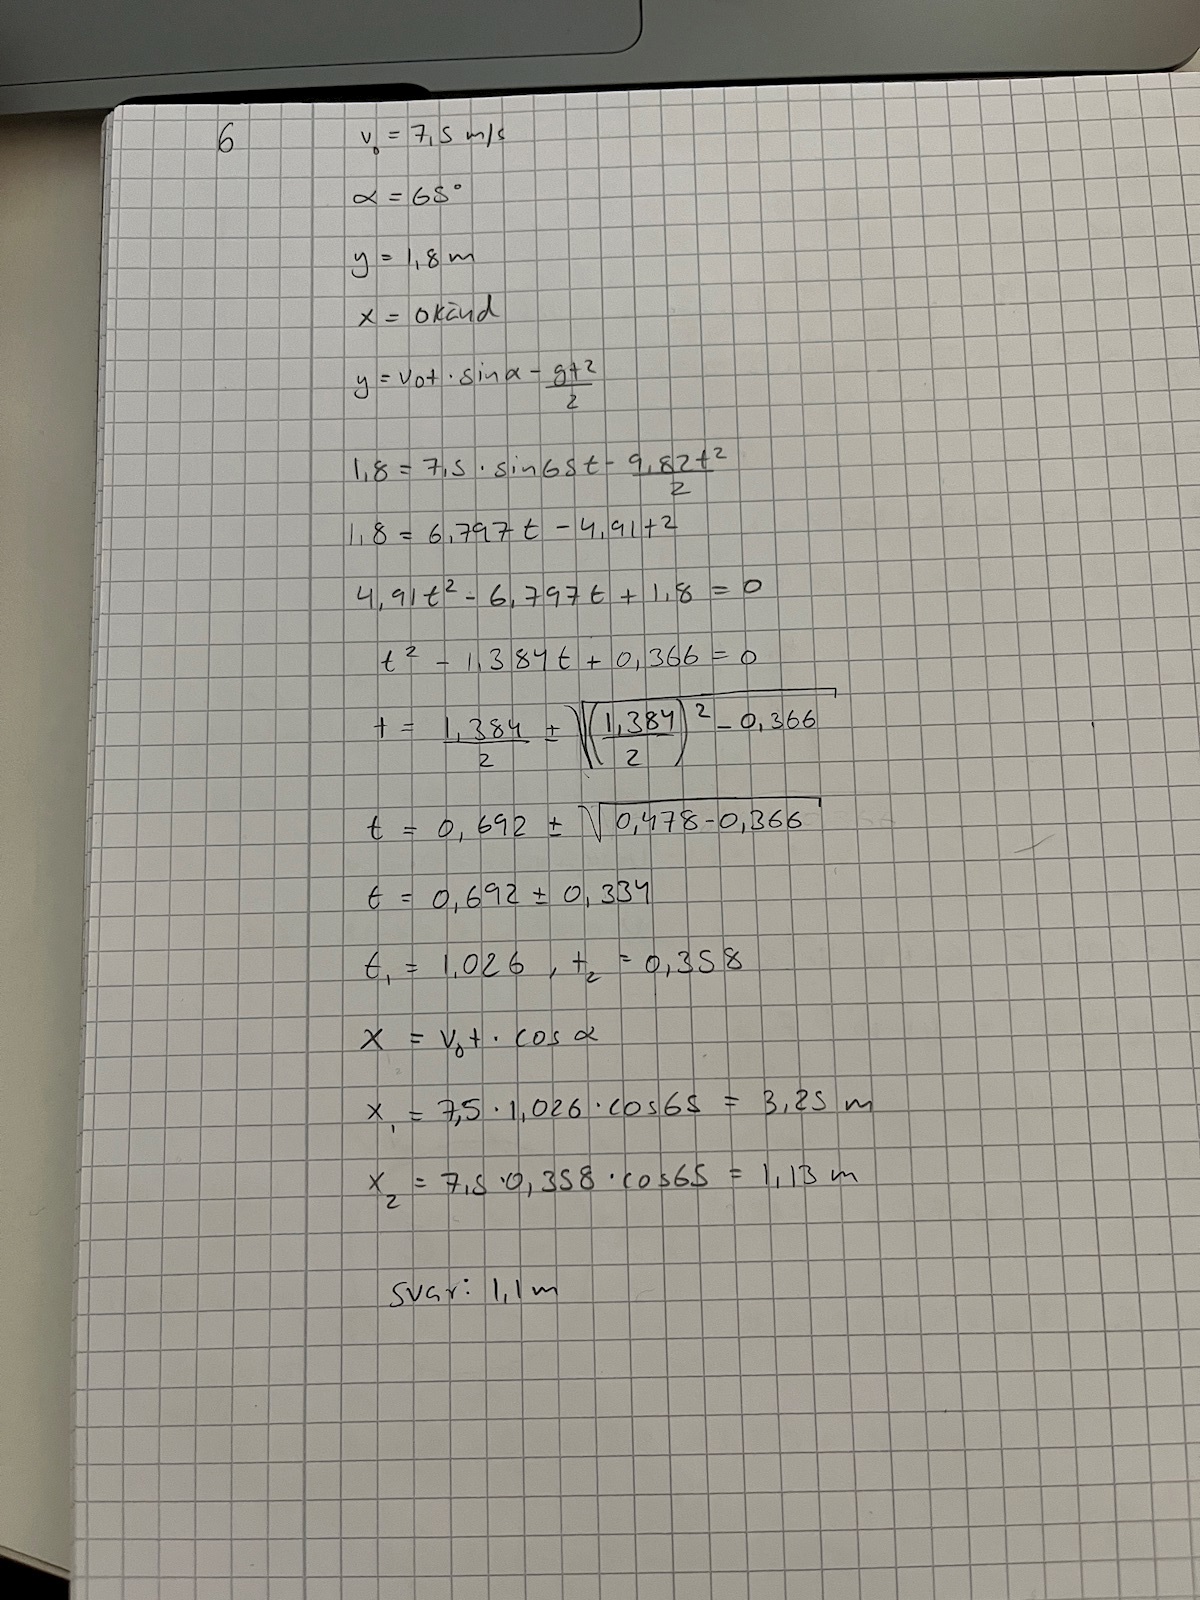 6
v₀ = 7,5 m/s
α = 65°
y = 1,8 m
x = okänd
y = v0t · sinα - gt²/2
1,8 = 7,5 · sin65t - 9,82t²/2
1,8 = 6,797t - 4,91t2
4,91t² - 6,797t + 1,8 = 0
t² - 1,384t + 0,366 = 0
t = 1,384/2 ± √((1,384/2)² - 0,366)
t = 0,692 ± √(0,478-0,366)
t = 0,692 ± 0,334
t₁ = 1.026 , t₂ = 0,358
x = v₀t · cos α
x₁ = 7,5 · 1,026 · cos65 = 3,25 m
x₂ = 7,5 · 0,358 · cos65 = 1,13 m
Svar: 1,1 m